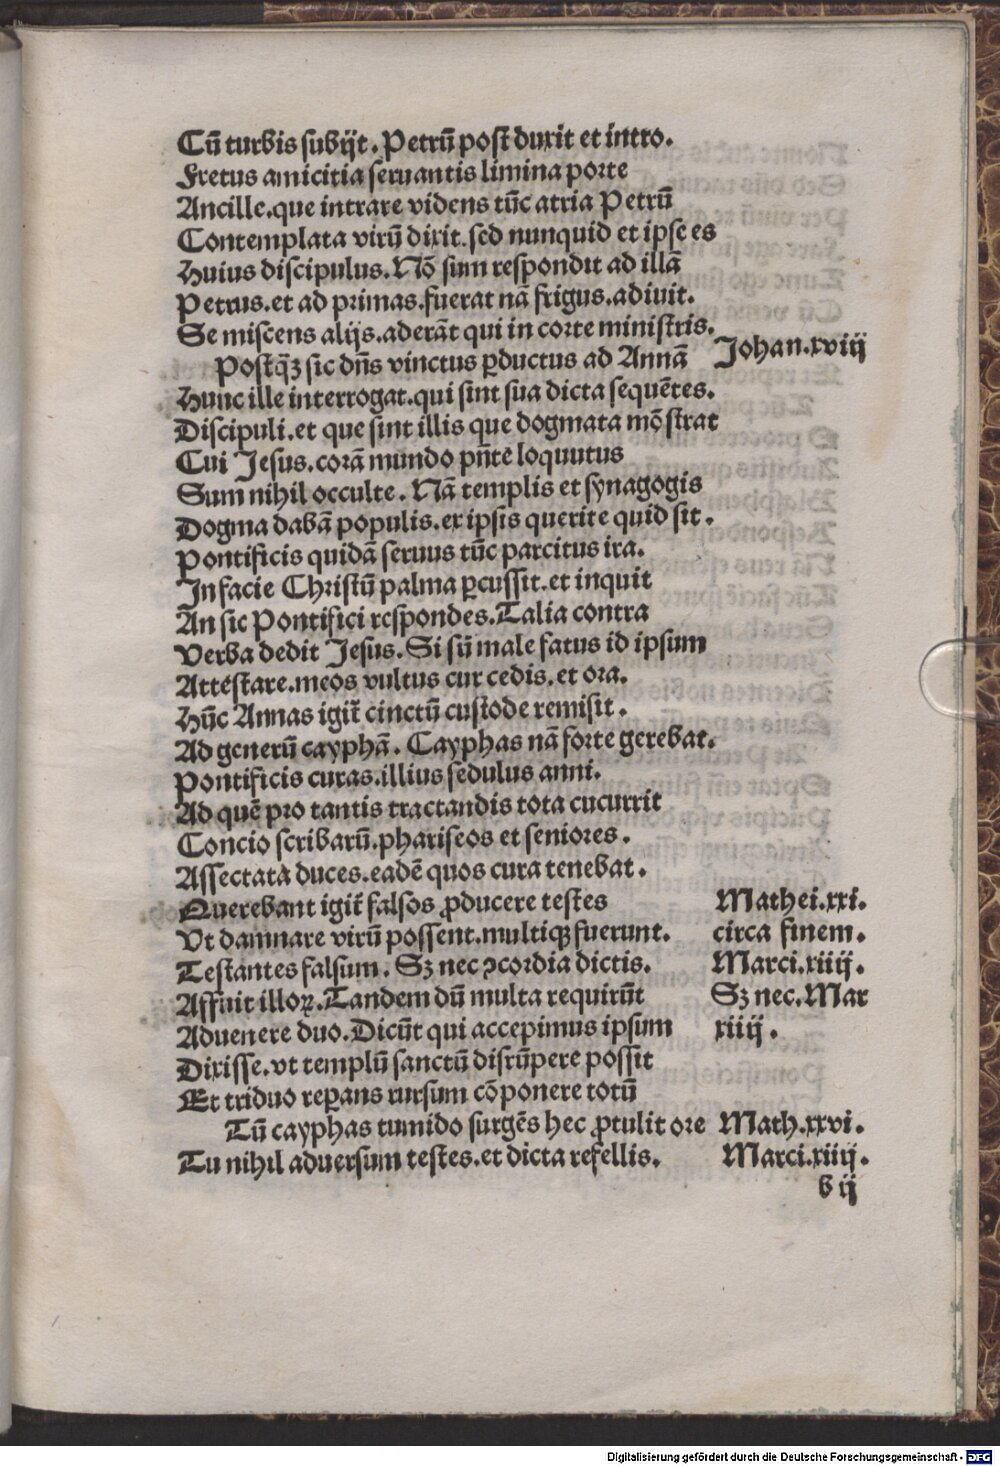 Cū turbis subijt. Petrū post duxit et intro.
Fretus amicitia seruantis limina porte
Ancille.que intrare videns tūc atria Petrū
Contemplata virū dixit.sed nunquid et ipse es
Huius discipulus. Nō sum respondit ad illā
Petrus.et ad primas.fuerat nā frigus.adiuit.
Se miscens alijs.aderāt qui in corte ministris.
Postq̄ꝫ sic dn̄s vinctus ꝑductus ad Annā Johan.xviij
Hunc ille interrogat.qui sint sua dicta sequētes.
Discipuli.et que sint illis que dogmata mōstrat
Cui Jesus.corā mundo pn̄te loquutus
Sum nihil occulte. Nā templis et synagogis
Dogma dabā populis.ex ipsis querite quid sit.
Pontificis quidā seruus tūc parcitus ira.
In facie Christū palma ꝑcussit.et inquit
An sic Pontifici respondes.Talia contra
Verba dedit Jesus. Si sū male fatus id ipsum
Attestare.meos vultus cur cedis.et ora.
Hūc Annas igit̄ cinctū custode remisit.
Ad generū cayphā. Cayphas nā forte gerebat.
Pontificis curas.illius sedulus anni.
Ad quē pro tantis tractandis tota cucurrit
Concio scribarū.phariseos et seniores.
Assectata duces.eadē quos cura tenebat.
Querebant igit̄ falsos ꝓducere testes Mathei.xxi.
Vt damnare virū possent.multiqꝫ fuerunt. circa finem.
Testantes falsum. Sꝫ nec ꝯcordia dictis. Marci.xiiij.
Affuit illoꝝ. Tandem dū multa requirūt Sꝫ nec.Mar
Aduenere duo.Dicūt qui accepimus ipsum xiiij.
Dixisse.vt templū sanctū disrūpere possit
Et triduo reꝑans rursum cōponere totū
Tū cayphas tumido surgēs hec ꝓtulit ore Math.xxvi.
Tu nihil aduersum testes.et dicta refellis. Marci.xiiij.
b ij
Digitalisierung gefördert durch die Deutsche Forschungsgemeinschaft - DFG